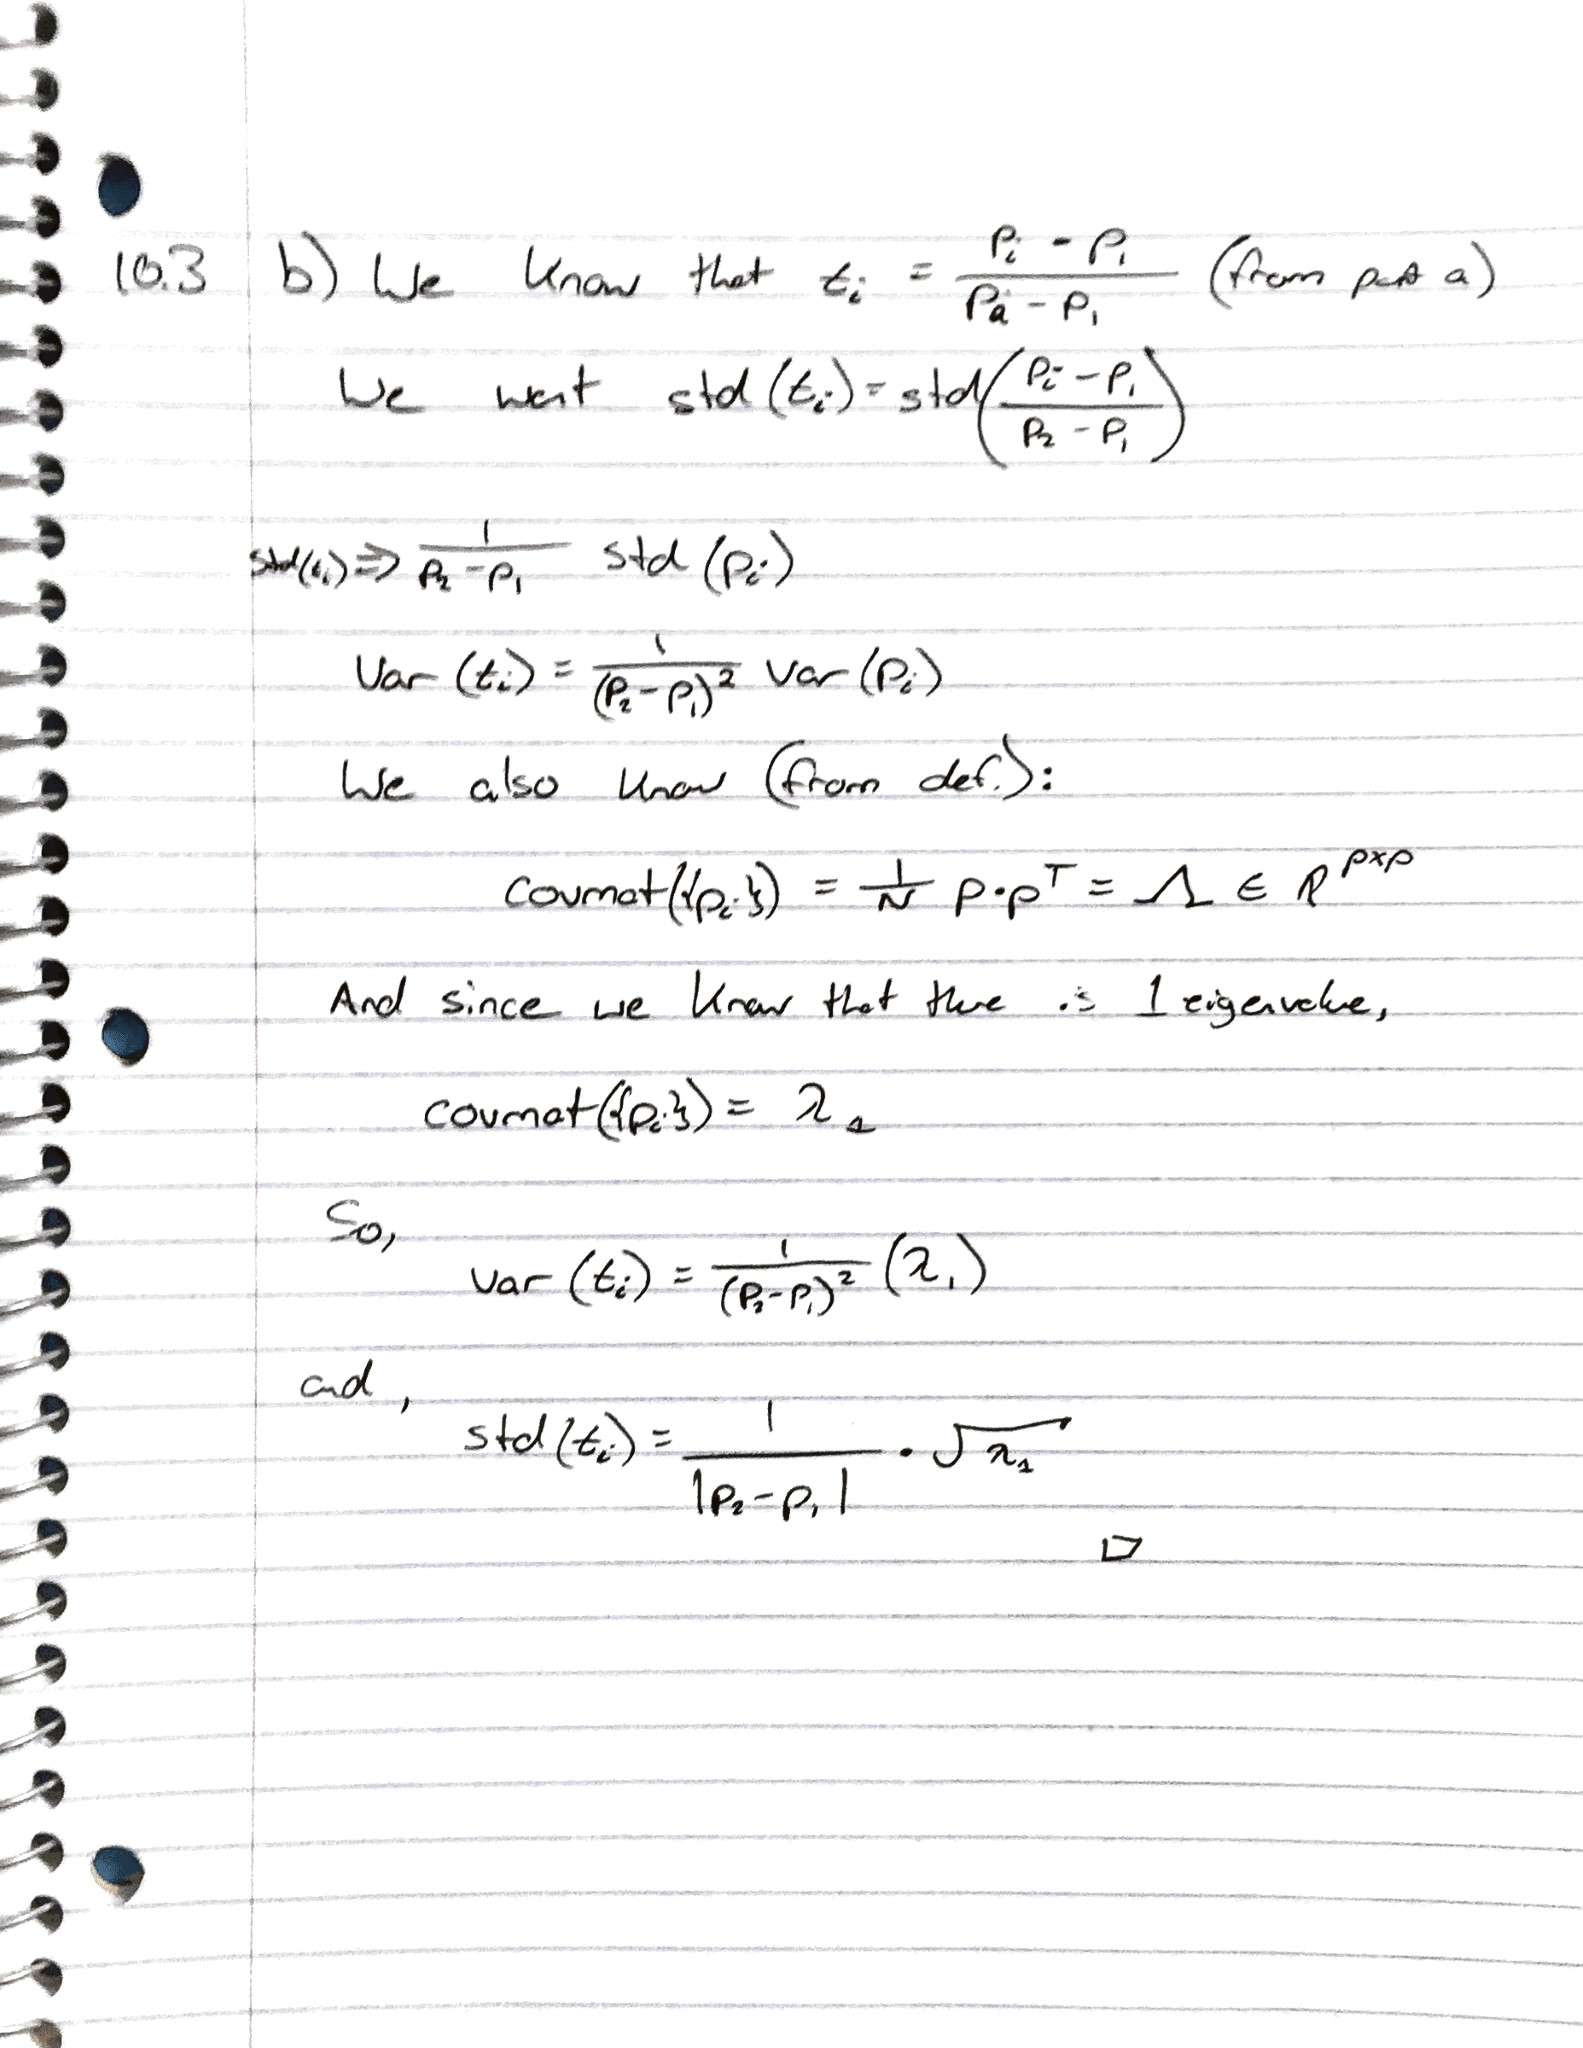 10.3 b) We know that tᵢ = (pᵢ - p₁)/(p₂ - p₁) (from part a)
We want std(tᵢ) = std((pᵢ - p₁)/(p₂ - p₁))
std(tᵢ) ⇒ 1/(p₂ - p₁) std(pᵢ)
Var(tᵢ) = 1/(p₂ - p₁)² var(pᵢ)
We also know (from def.):
covmat({pᵢ}) = 1/N p·pᵀ = Λ ∈ R^(p×p)
And since we know that there is 1 eigenvalue,
covmat({pᵢ}) = λ₁
So,
var(tᵢ) = 1/(p₂ - p₁)² (λ₁)
and,
std(tᵢ) = 1/|p₂ - p₁| · √λ₁
□